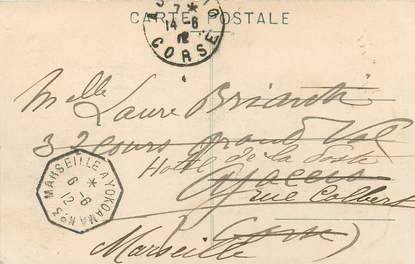 CARTE POSTALE
7 *
14 -6
12
CORSE
Melle Laure Briant
32 cours grand Val
Hotel de la Poste
Ajaccio
rue Colbert
Marseille
MARSEILLE A YOKOHAMA N°3
*
6 -6
12